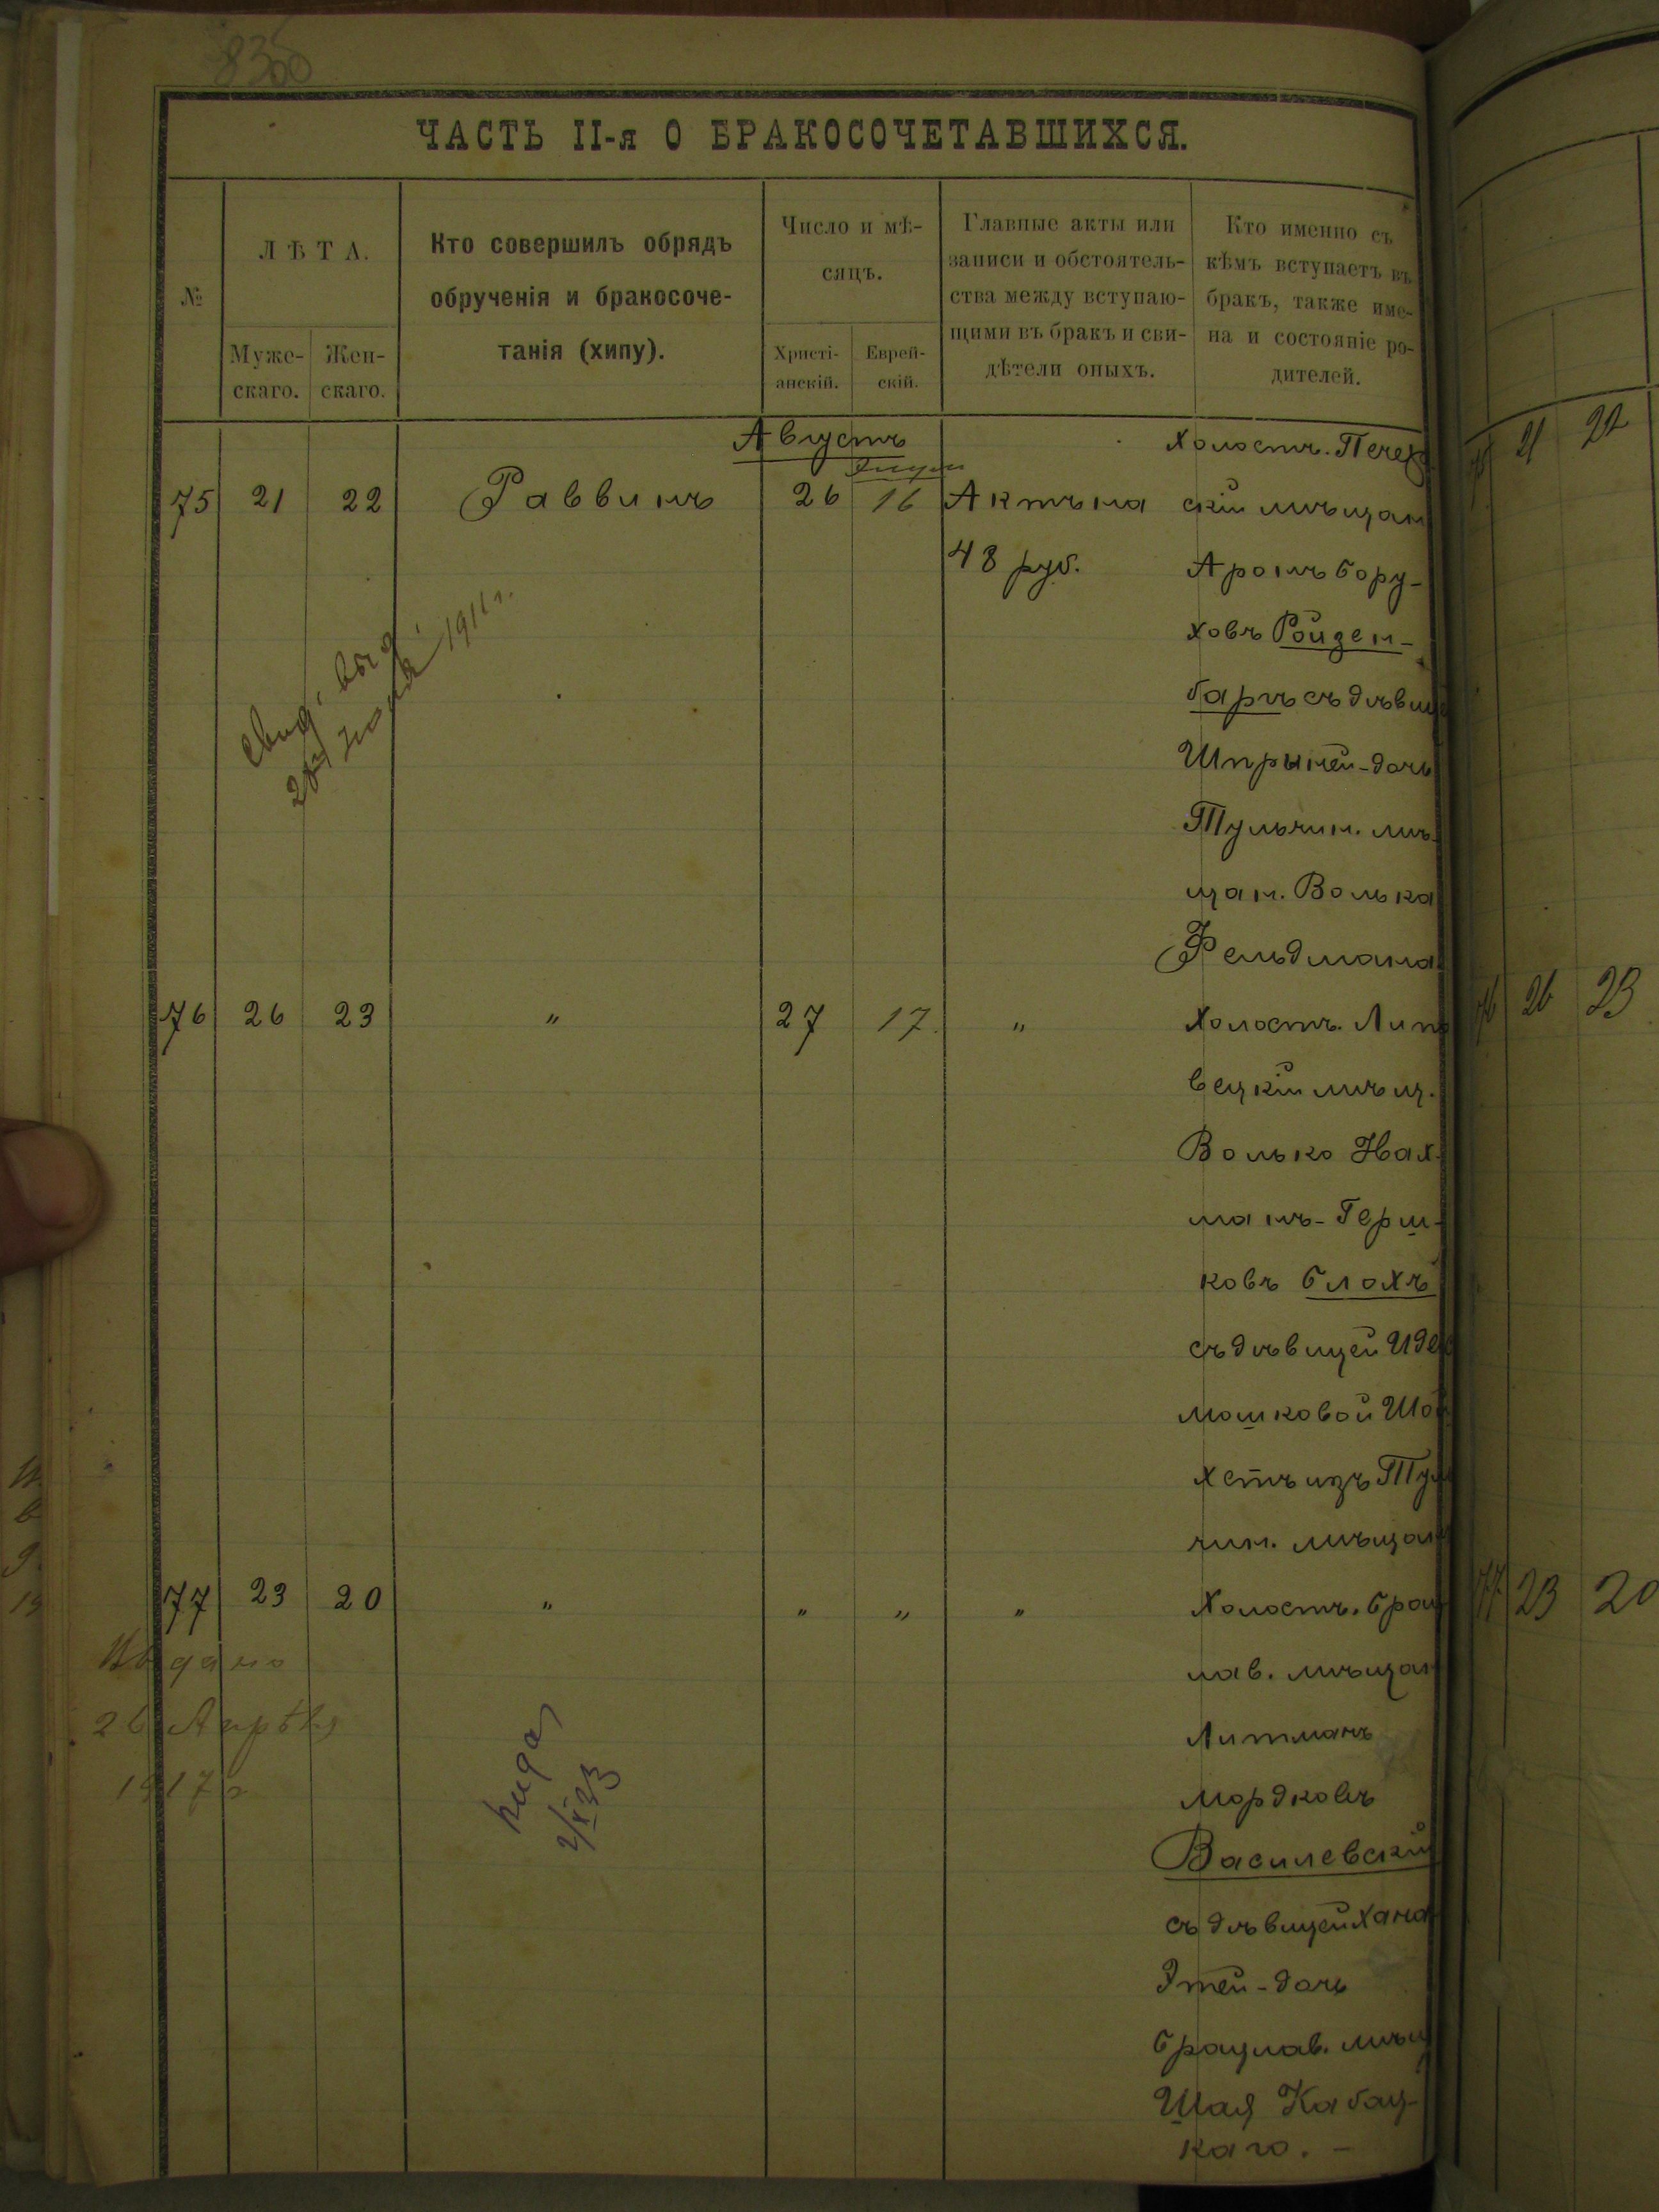 ЧАСТЬ II-я О БРАКОСОЧЕТАВШИХСЯ.
№
ЛѢТА.
Муже-
скаго.
Жен-
скаго.
Кто совершилъ обрядъ
обрученія и бракосоче-
танія (хипу).
Число и мѣ-
сяцъ.
Христі-
анскій.
Еврей-
скій.
Главные акты или
записи и обстоятель-
ства между вступаю-
щими въ бракъ и сви-
дѣтели оныхъ.
Кто именно съ
кѣмъ вступаетъ въ
бракъ, также име-
на и состояніе ро-
дителей.
Августъ
75 21 22 Раввинъ 26 16 Актъ на
48 руб.
Холостъ. Печер
скій мѣщан
Аронъ Бору-
ховъ Ройзен-
баръ съ дѣвиц
Шпрыней-дочь
Тульчин. мѣ-
щан. Волька
Фельдмана
76 26 23 " 27 17. "
Холостъ. Лип
вецкій мѣщ.
Волько Нах-
манъ-Герш-
ковъ Блохъ
съ дѣвицей Иде
Мошковой Шо
хетъ изъ Тул
чин. мѣщан
77 23 20 " " " "
Холостъ. Брац
лав. мѣщан
Литманъ
Мордковъ
Василевскій
съ дѣвицей Хана
Этей-дочь
Брацлав. мѣщ
Шая Кабац-
каго. -
свид. выд.
1911 г.
Выдано
26 Апрѣля
1917 г
21 22
76 26 23
77 23 20